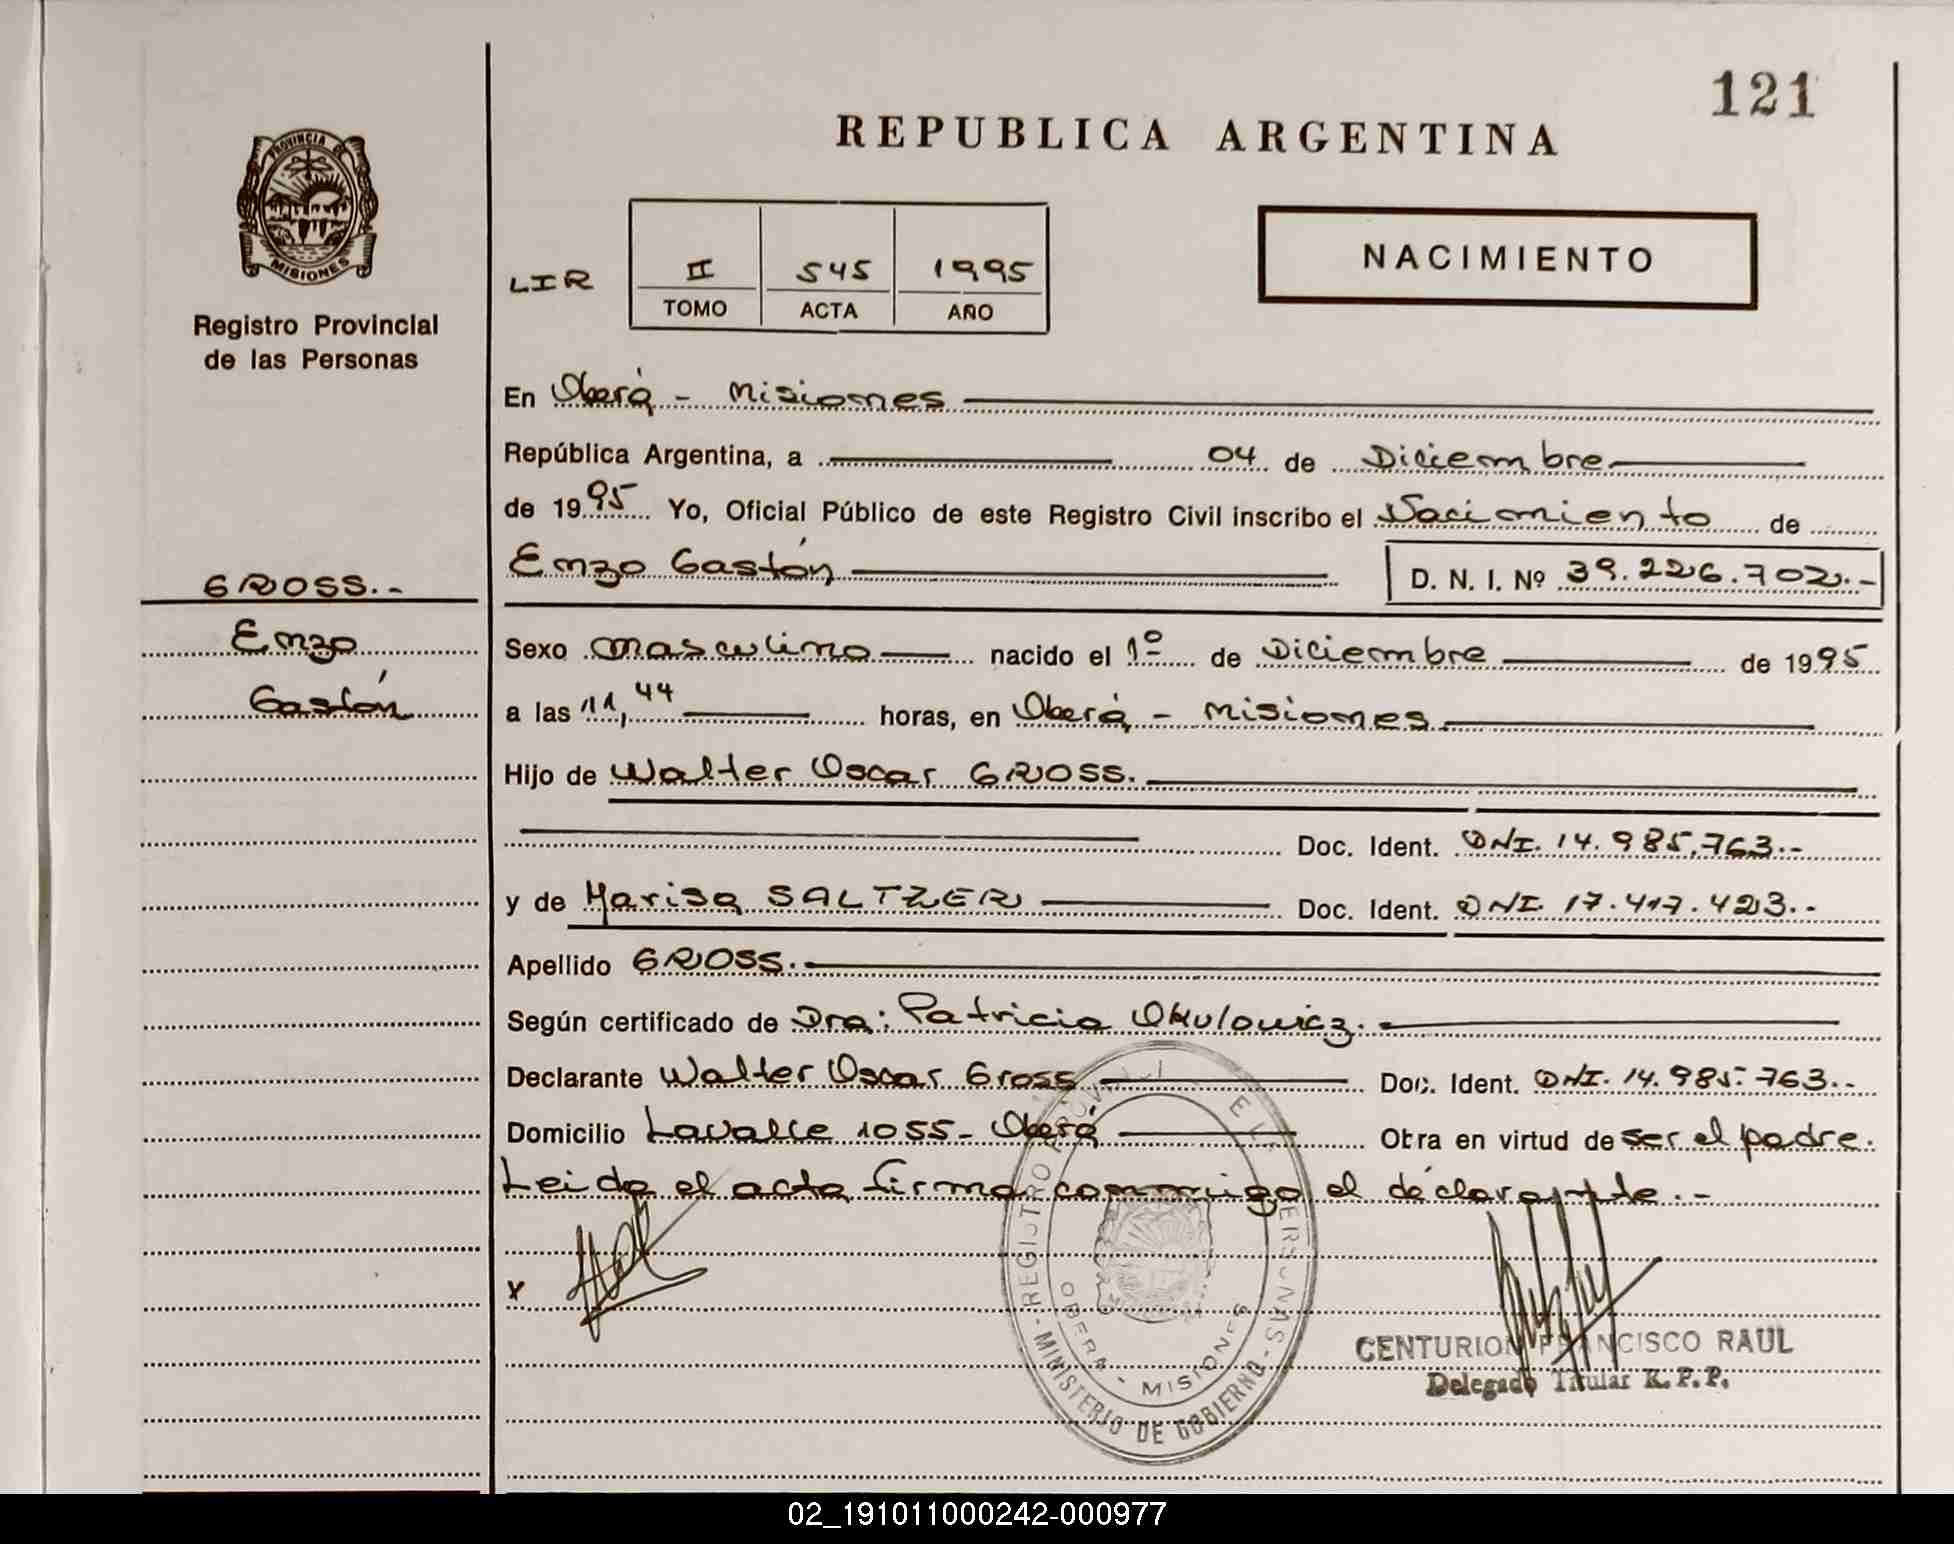 121
REPUBLICA ARGENTINA
PROVINCIA DE
MISIONES
Registro Provincial
de las Personas
LIR
II 545 1995
TOMO ACTA AÑO
NACIMIENTO
En Oberá - Misiones
República Argentina, a 04 de Diciembre
de 1995 Yo, Oficial Público de este Registro Civil inscribo el Nacimiento de
Enzo Gastón D. N. I. Nº 39.226.702.-
GROSS.-
Enzo
Gastón
Sexo Masculino nacido el 1º de Diciembre de 1995
a las 11,44 horas, en Oberá - Misiones
Hijo de Walter Oscar GROSS.
Doc. Ident. DNI. 14.985.763.-
y de Marisa SALTZER Doc. Ident. DNI. 17.417.423.-
Apellido GROSS.-
Según certificado de Dra: Patricia Okulowicz.
Declarante Walter Oscar Gross Doc. Ident. DNI. 14.985.763.-
Domicilio Lavalle 1055- Oberá Obra en virtud de ser el padre.
Leida el acta firma conmigo el declarante.-
x
REGISTRO PERSONAS - MINISTERIO DE GOBIERNO -
OBERA - MISIONES
CENTURION FRANCISCO RAUL
Delegado Titular R.P.P.
02_191011000242-000977